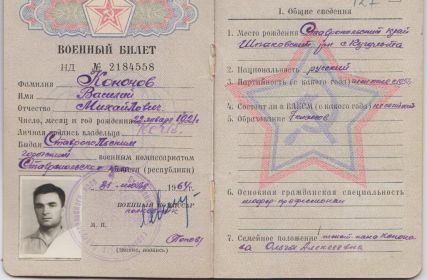 ВОЕННЫЙ БИЛЕТ
НД № 2184558
Фамилия Кононов
Имя Василий
Отчество Михайлович
Число, месяц и год рождения 22 января 1921 г.
Личная подпись владельца
Выдан Ставропольским
городским военным комиссариатом
Ставропольского края (республики)
31 1964 г.
военный комиссар
полковник
М. П.
(Попов)
(звание, подпись)
127
I. Общие сведения
1. Место рождения Ставропольский край
Шпаковский р-н с. Кугульта
2. Национальность русский
3. Партийность (с какого года)
4. Состоит ли в ВЛКСМ (с какого года) не состоит
5. Образование 7 классов
6. Основная гражданская специальность
шофер-профессионал
7. Семейное положение жена Кононо-
ва Ольга Алексеевна